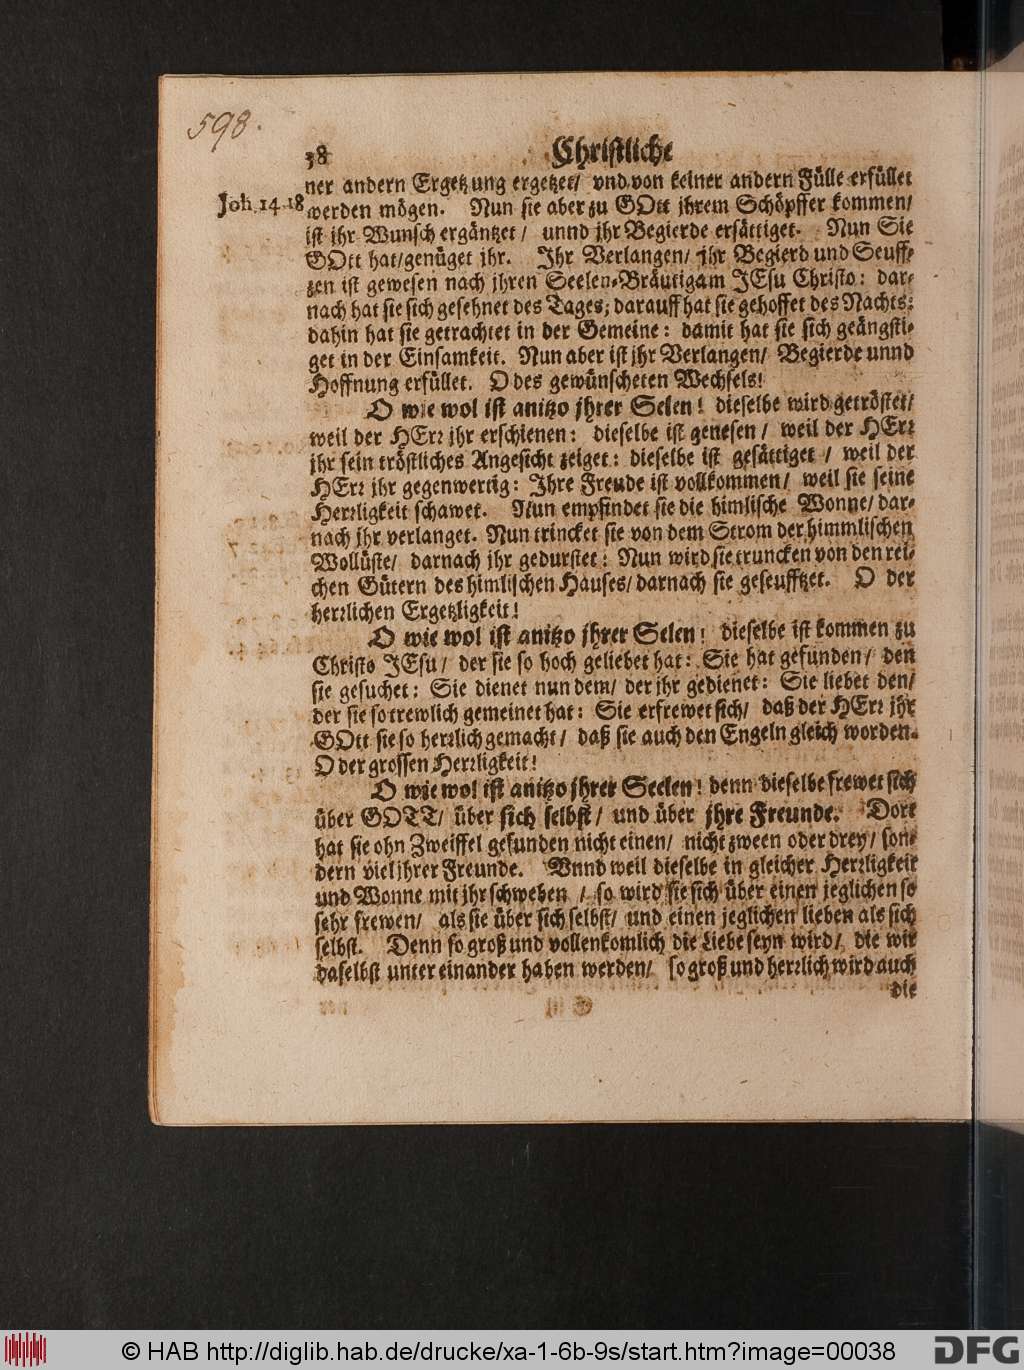 598.
38 Christliche
ner andern Ergetzung ergetzet/ vnd von keiner andern Fülle erfüllet
Joh. 14. 18 werden mögen. Nun sie aber zu GOtt jhrem Schöpffer kommen/
ist jhr Wunsch ergäntzet / unnd jhr Begierde ersättiget. Nun Sie
GOtt hat/genüget jhr. Ihr Verlangen/ jhr Begierd und Seuff-
zen ist gewesen nach jhren Seelen-Bräutigam JEsu Christo: dar-
nach hat sie sich gesehnet des Tages; darauff hat sie gehoffet des Nachts:
dahin hat sie getrachtet in der Gemeine: damit hat sie sich geängsti-
get in der Einsamkeit. Nun aber ist jhr Verlangen/ Begierde unnd
Hoffnung erfüllet. O des gewünscheten Wechsels!
O wie wol ist anitzo jhrer Selen! dieselbe wird getröstet/
weil der HErr jhr erschienen: dieselbe ist genesen / weil der HErr
jhr sein tröstliches Angesicht zeiget: dieselbe ist gesättiget / weil der
HErr jhr gegenwertig: Ihre Freude ist vollkommen/ weil sie seine
Herrligkeit schawet. Nun empfindet sie die himlische Wonne/ dar-
nach jhr verlanget. Nun trincket sie von dem Strom der himmlischen
Wollüste/ darnach jhr gedurstet: Nun wird sie truncken von den rei-
chen Gütern des himlischen Hauses/ darnach sie geseufftzet. O der
herrlichen Ergetzligkeit!
O wie wol ist anitzo jhrer Selen! dieselbe ist kommen zu
Christo JEsu/ der sie so hoch geliebet hat: Sie hat gefunden/ den
sie gesuchet: Sie dienet nun dem/ der jhr gedienet: Sie liebet den/
der sie so trewlich gemeinet hat: Sie erfrewet sich/ daß der HErr jhr
GOtt sie so herrlich gemacht/ daß sie auch den Engeln gleich worden.
O der grossen Herrligkeit!
O wie wol ist anitzo jhrer Seelen! denn dieselbe frewet sich
über GOTT/ über sich selbst/ und über jhre Freunde. Dort
hat sie ohn Zweiffel gefunden nicht einen/ nicht zween oder drey/ son-
dern viel jhrer Freunde. Vnnd weil dieselbe in gleicher Herrligkeit
und Wonne mit jhr schweben / so wird sie sich über einen jeglichen so
sehr frewen/ als sie über sich selbst/ und einen jeglichen lieben als sich
selbst. Denn so groß und vollenkomlich die Liebe seyn wird/ die wir
daselbst unter einander haben werden/ so groß und herrlich wird auch
die
© HAB http://diglib.hab.de/drucke/xa-1-6b-9s/start.htm?image=00038
DFG